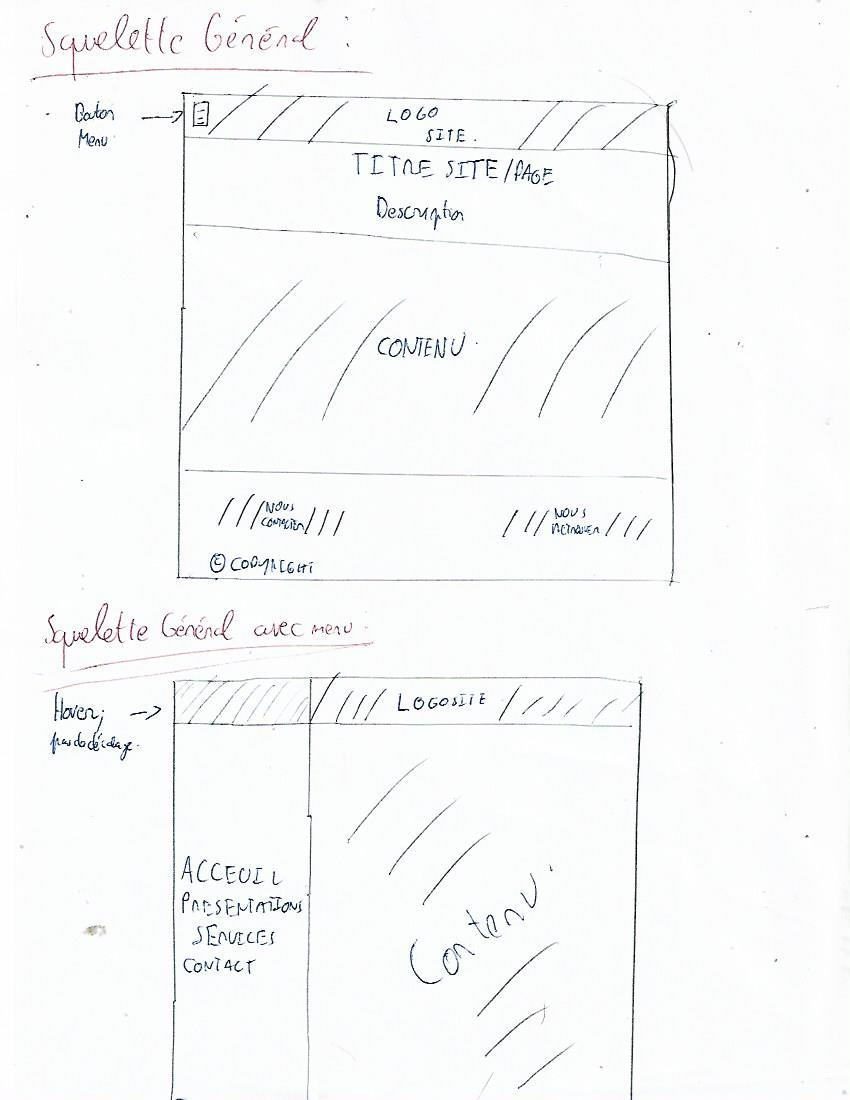 Squelette Général :
Bouton
Menu
LOGO
SITE.
TITRE SITE/PAGE
Description
CONTENU.
NOUS
CONTACTER
NOUS
RETROUVER
© COPYRIGHT
Squelette Général avec menu.
Hover;
pas de décalage.
LOGOSITE
ACCEUIL
PRESENTATIONS
SERVICES
CONTACT
Contenu.